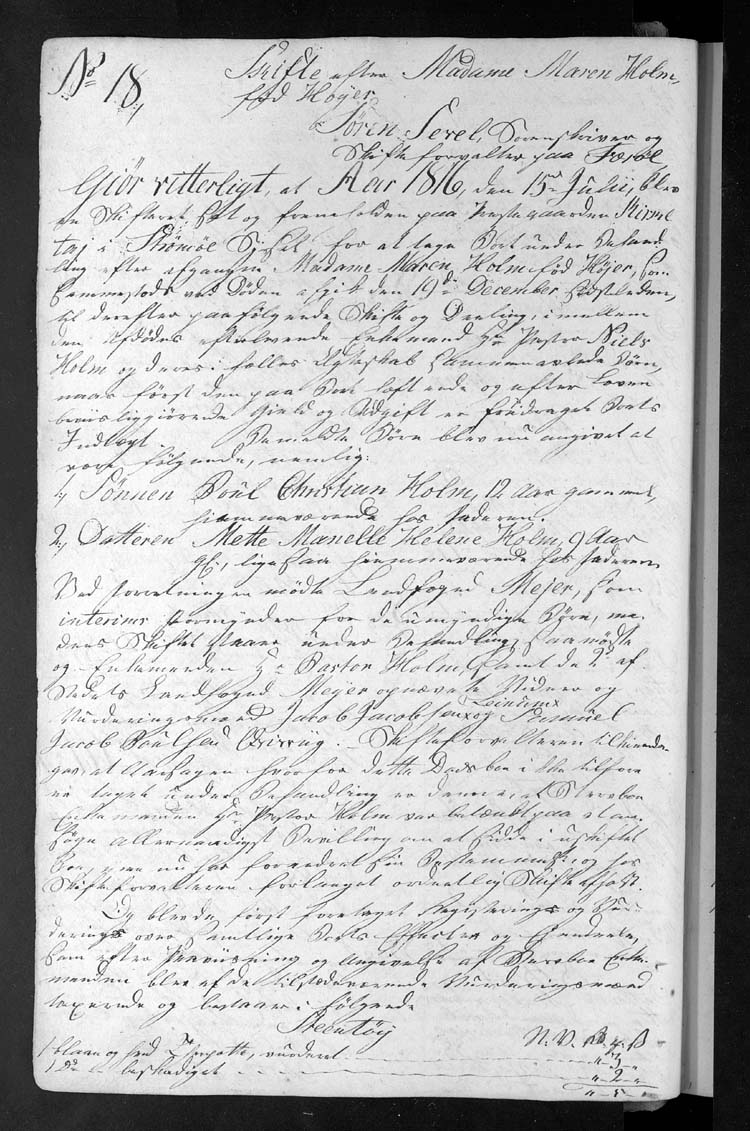 No 18, Skifte efter Madame Maren Holm,
fød Høyer,
Sören Sevel, Sorenskriver og
Skifteforvalter paa Færøe,
Giör vitterligt, at Aar 1816, den 15de Julii, blev
en Skifteret sat og fremholden paa Præstegaarden
i Strömöe Syssel for at tage Boet under Behand-
ling efter afgangne Madame Maren Holm fød Höjer, som
sammesteds ved Döden afgik den 19de December sidstleden,
til derefter paafölgende Skifte og Deeling, imellem
den afdödes efterlevende Enkemand Hr Pastor Niels
Holm og deres i fælles Ægteskab sammenavlede Börn,
naar först den paa Boet heftende og efter Loven
beviisliggjörende Gield og Udgift er fradraget Boets
Indtægt. Bemeldte Börn blev nu angivet at
være fölgende, nemlig:
1, Sönnen Poül Christian Holm, 12 Aar gammel,
hiemmeværende hos Faderen.
2, Datteren Mette Manelle Helene Holm, 9 Aar
gl., ligesaa hiemmeværende hos Faderen
Ved Forretningen mödte Landfoged Mejer, som
interims Formynder for de umyndige Börn, me-
dens Skiftet staaer under Behandling, saa mödte
og Enkemanden Hr Pastor Holm, samt de 2de af
Stedets Landfoged Mejer opnævnte Vidner og
Vurderingsmænd Jacob Jacobsen og Samüel
Jacob Poülsen. Skifteforvalteren tilkiende-
gav, at Aarsagen hvorfor dette Dødsboe ikke tilforn
er taget under Behandling er denne, at Sterboe
Enkemanden Hr Pastor Holm var betænkt paa at an-
söge allernaadigst Bevilling om at sidde i uskiftet
Boe, men nu har forandret sin Bestemmelse og hos
Skifteforvalteren forlanget ordentlig Skifte afholdt.
Og blev da först foretaget Registrering og Vur-
dering over samtlige Boets Effecter og Eiendele,
som efter Paaviisning og Angivelse af Sterboe Enke-
manden blev af de tilstædeværende Vurderingsmænd
taxerede og bestaaer i fölgende
Steentöy N.V. Rd ß
1 blaau og hvid Theepotte, vurderet " 3 "
1 Do beskadiget " 2 "
" 5 "